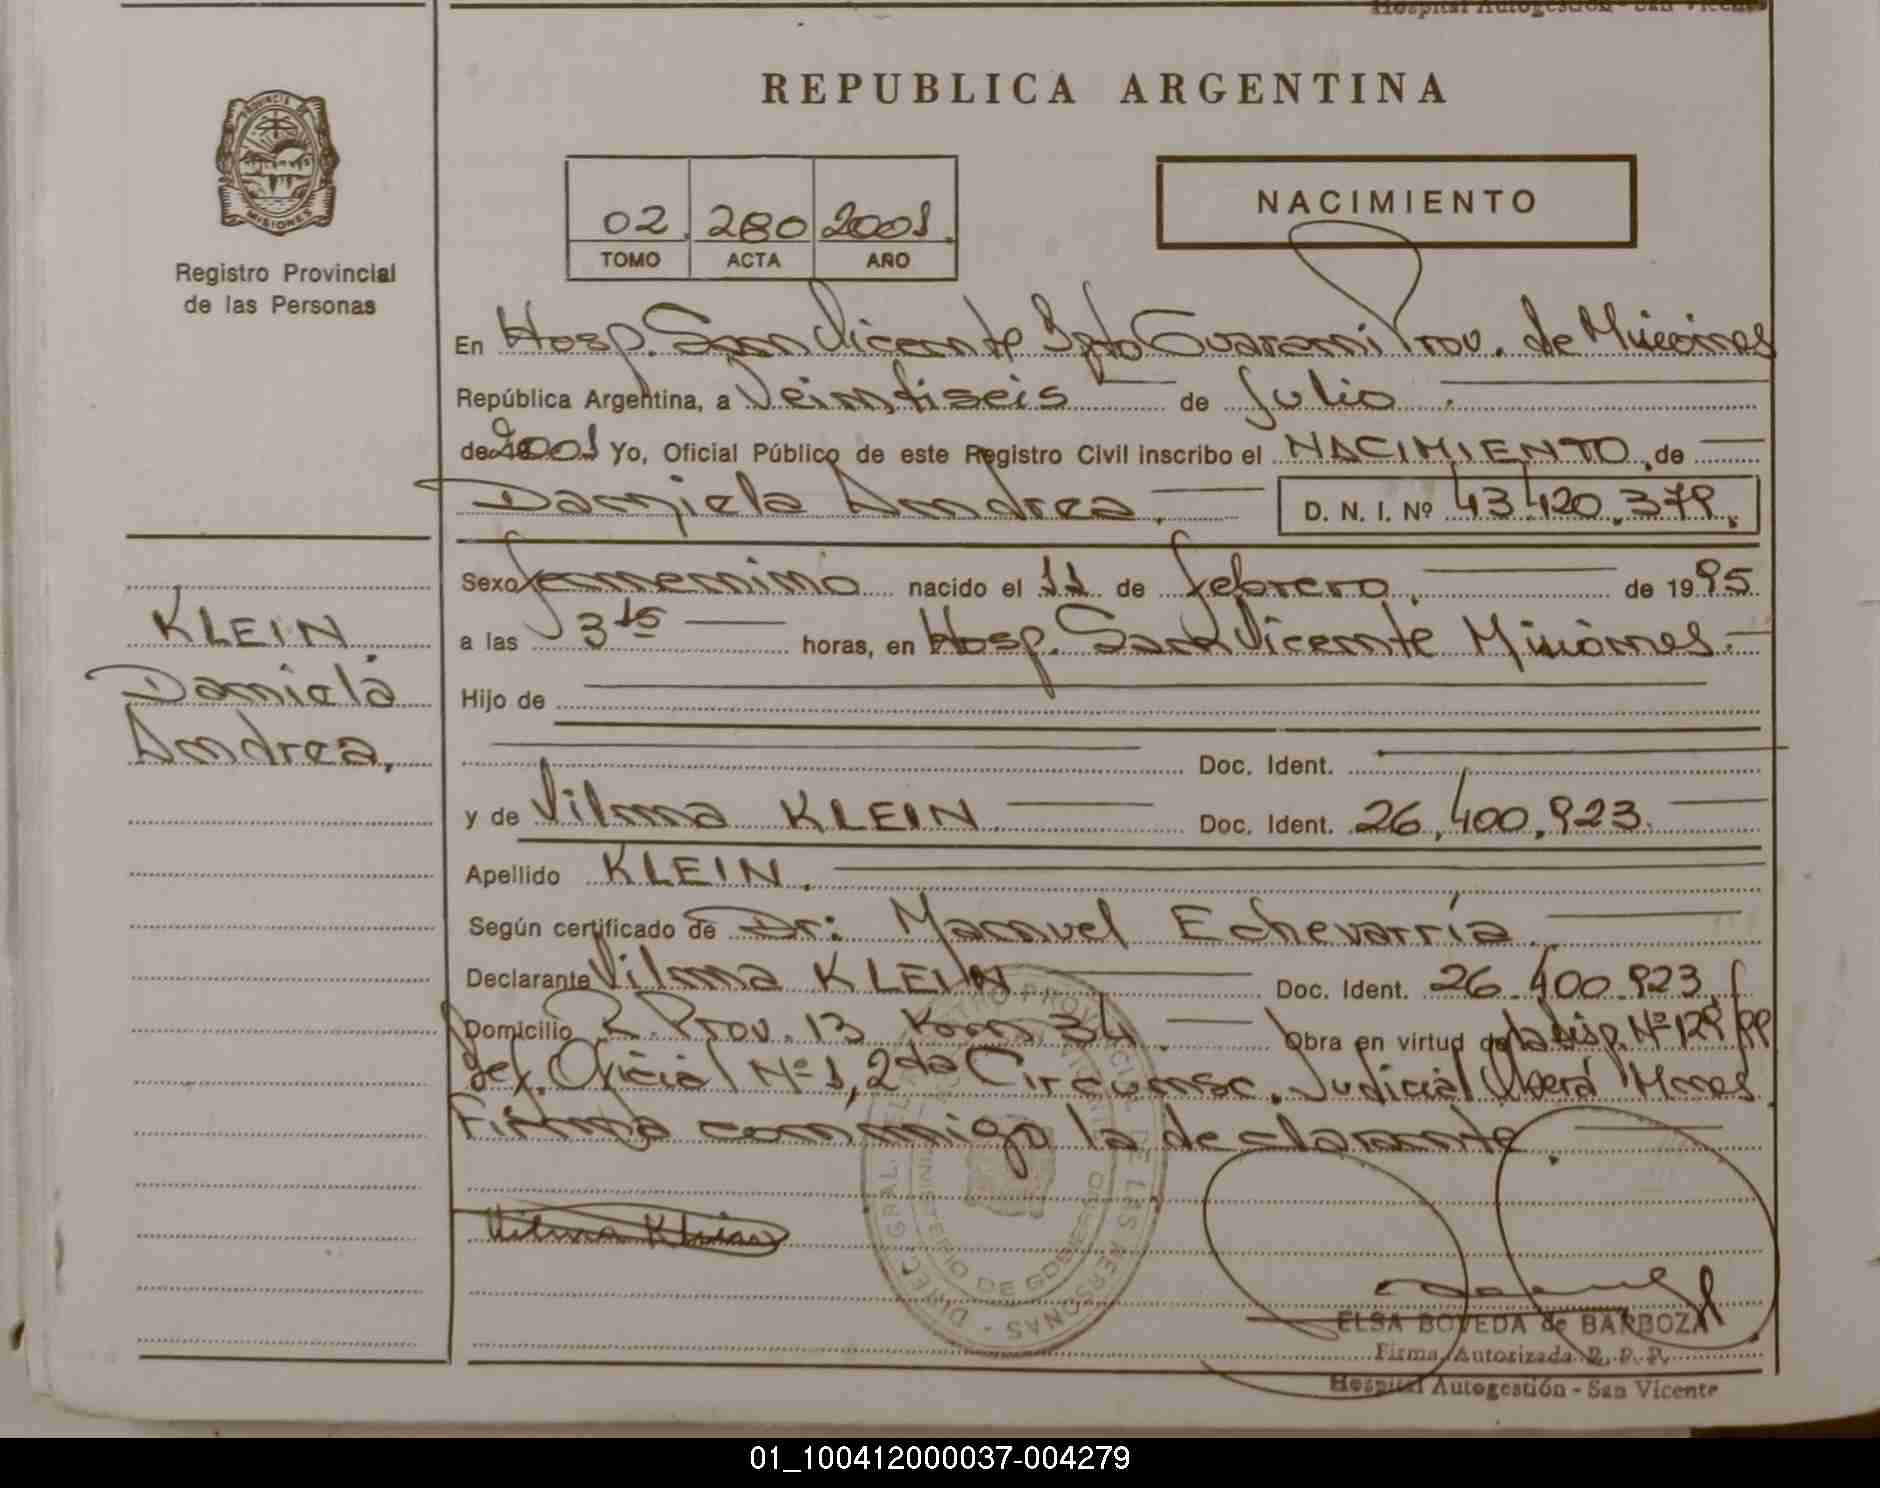 Hospital Autogestión - San Vicente
REPUBLICA ARGENTINA
PROVINCIA DE
MISIONES
Registro Provincial
de las Personas
02. 280 2001.
TOMO ACTA AÑO
NACIMIENTO
En Hosp. San Vicente Dpto Guarani Prov. de Misiones
República Argentina, a Veintiseis de Julio.
de 2001 Yo, Oficial Público de este Registro Civil inscribo el NACIMIENTO, de
Daniela Andrea. D. N. I. Nº 43.420.379.
Sexo femenino nacido el 11 de febrero. de 1995
a las 3 15 horas, en Hosp. San Vicente Misiones.
Hijo de
Doc. Ident.
y de Vilma KLEIN Doc. Ident. 26.400.923.
Apellido KLEIN.
Según certificado de Dr: Manuel Echevarría
Declarante Vilma KLEIN Doc. Ident. 26.400.923
Domicilio R. Prov. 13 Km 34. Obra en virtud de la disp. Nº 129/99
Def. Oficial Nº 1, 2da Circunsc. Judicial Oberá Mnes.
Firma conmigo la declarante.
KLEIN
Daniela
Andrea.
Vilma Klein
DIREC. GRAL. DEL REGISTRO PROVINCIAL DE LAS PERSONAS
MINISTERIO DE GOBIERNO
ELSA BOVEDA de BARBOZA
Firma Autorizada R. P. P.
Hospital Autogestión - San Vicente
01_100412000037-004279